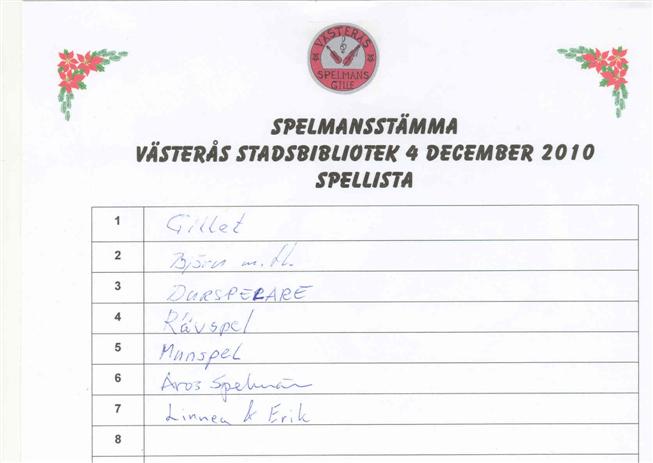 VÄSTERÅS
SPELMANS
GILLE
SPELMANSSTÄMMA
VÄSTERÅS STADSBIBLIOTEK 4 DECEMBER 2010
SPELLISTA
1 Gillet
2 Björn m.fl.
3 DURSPELARE
4 Rävspel
5 Munspel
6 Aros Spelmän
7 Linnea & Erik
8